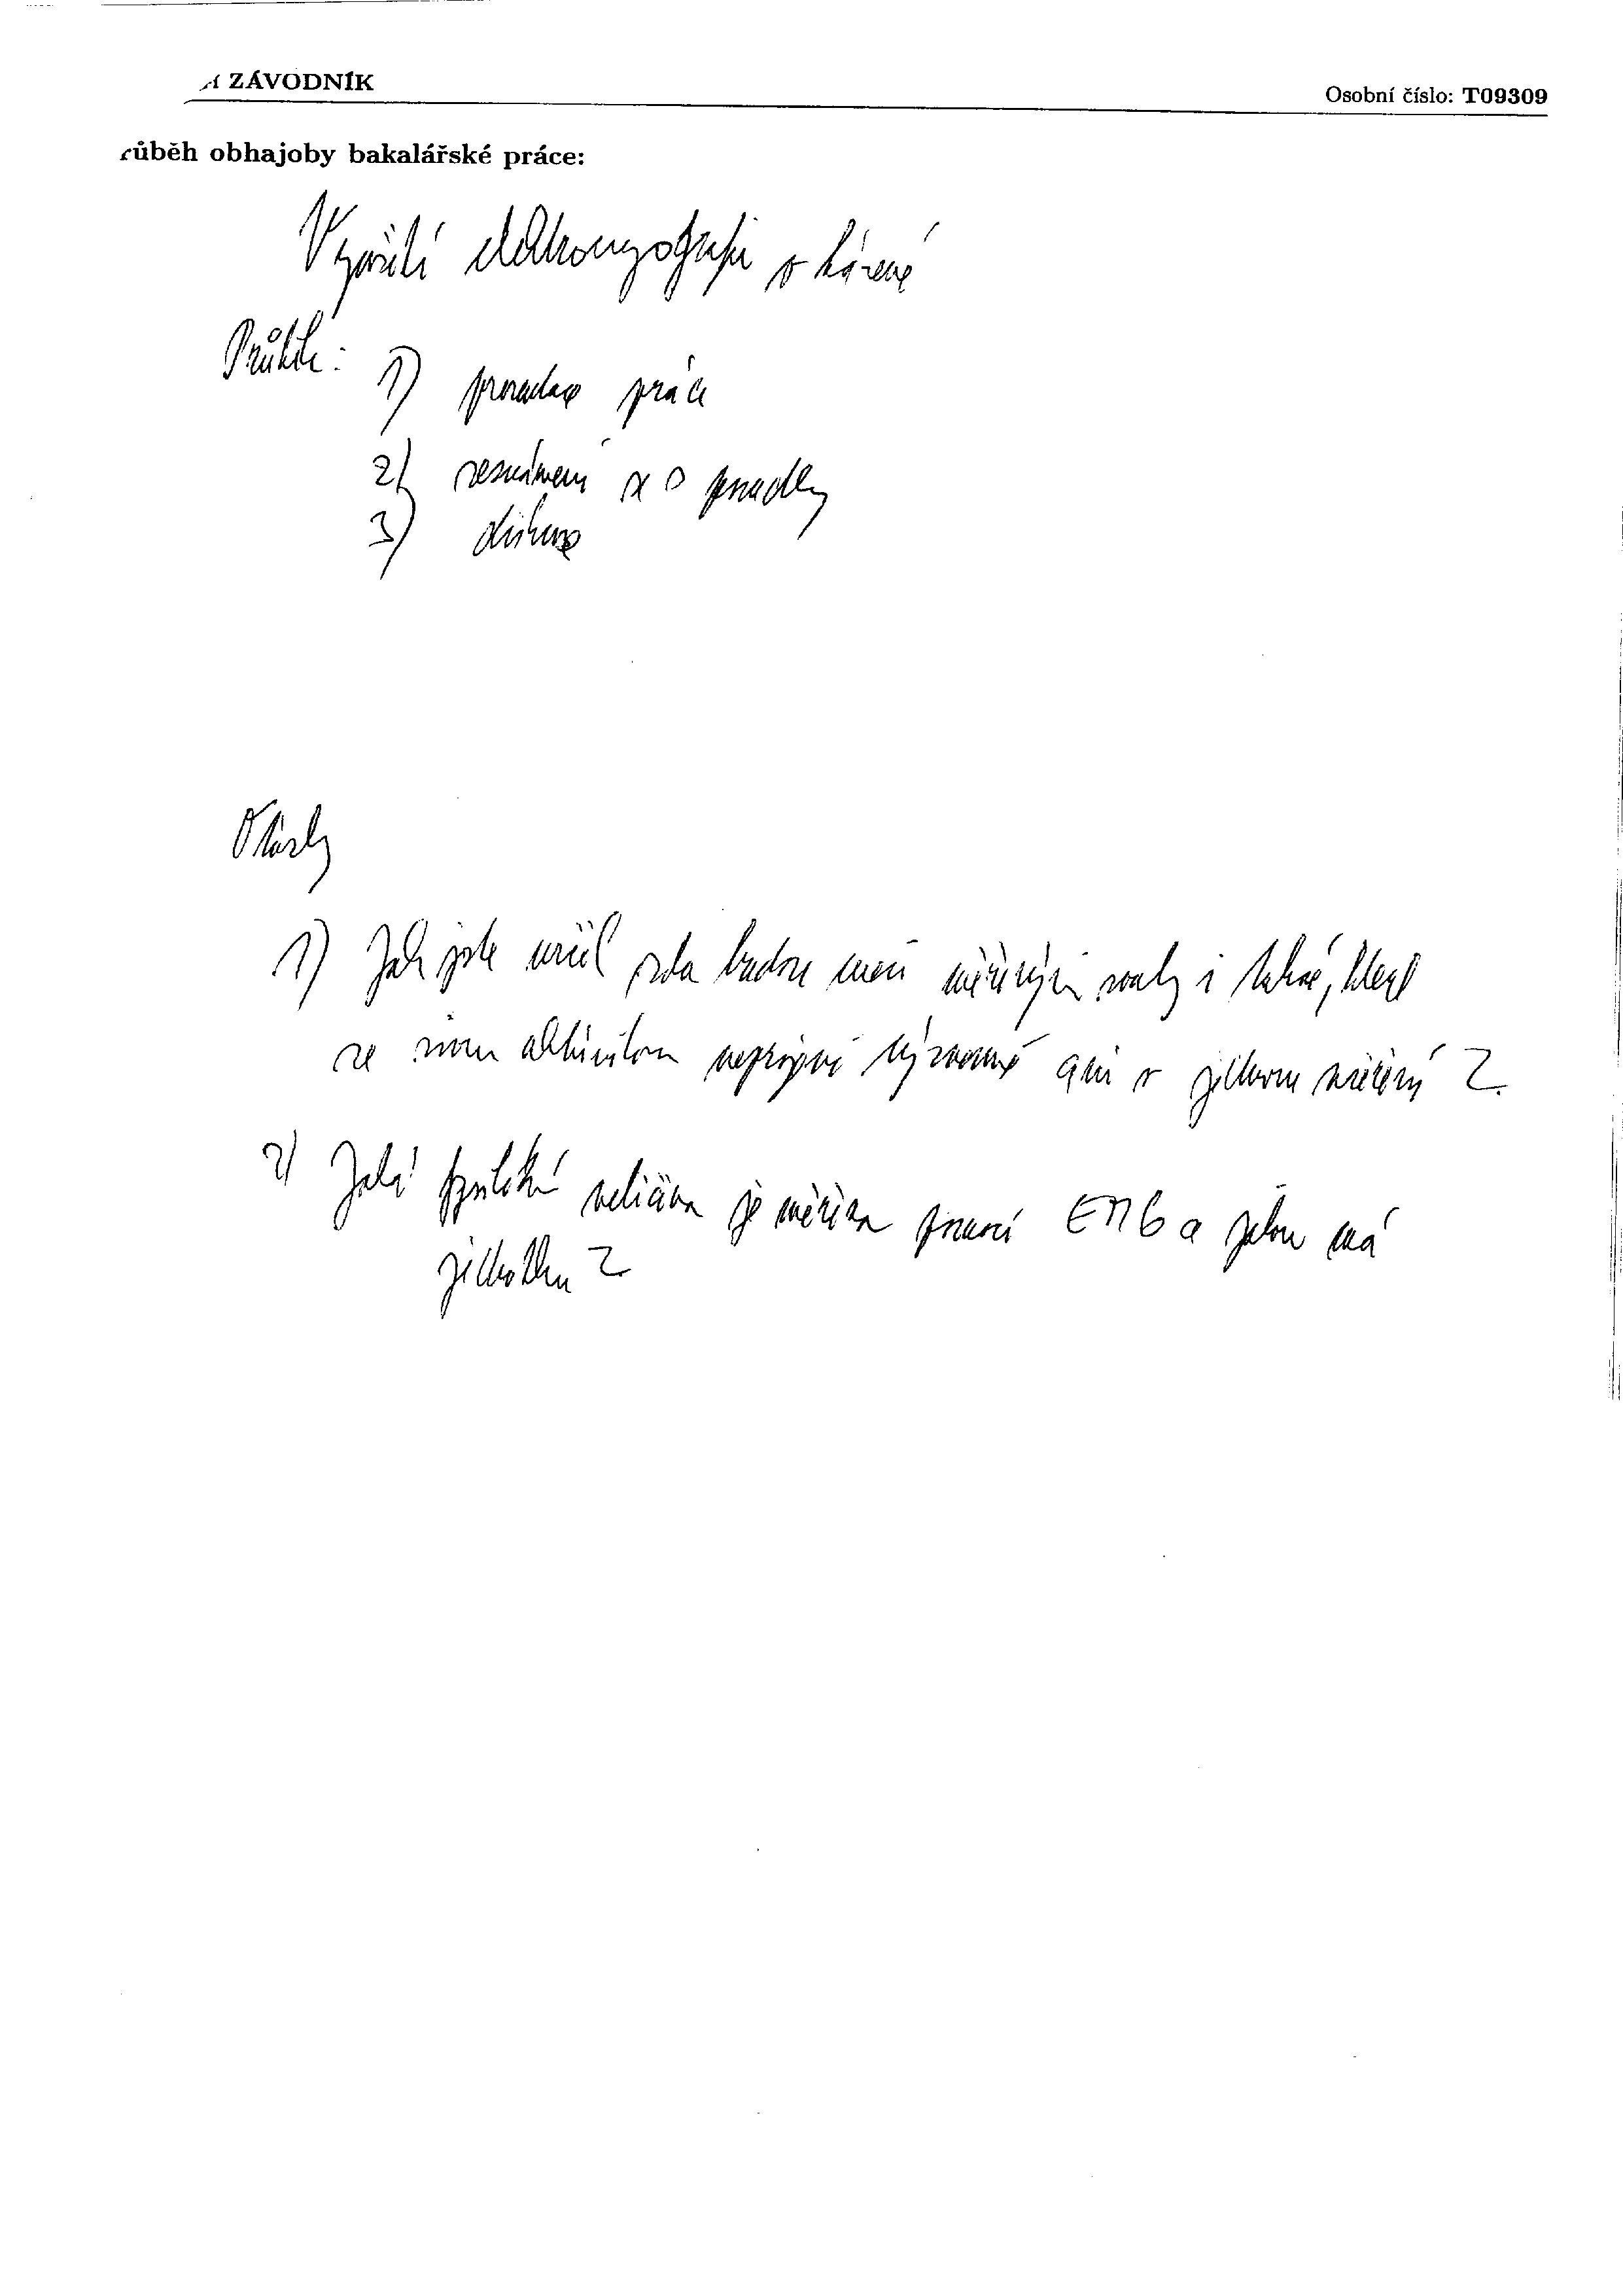 ZÁVODNÍK
Osobní číslo: T09309
růběh obhajoby bakalářské práce:
Využití elektromyografie v
Průběh:
1) prezentace práce
2) seznámení s posudky
3) diskuse
Otázky
1) Jak jste určil zda budou mezi měřenými svaly i takové, které
se svou aktivitou neprojeví významně ani v jednom měření ?
2) Jaká fyzikální veličina je měřena pomocí EMG a jakou má
jednotku ?